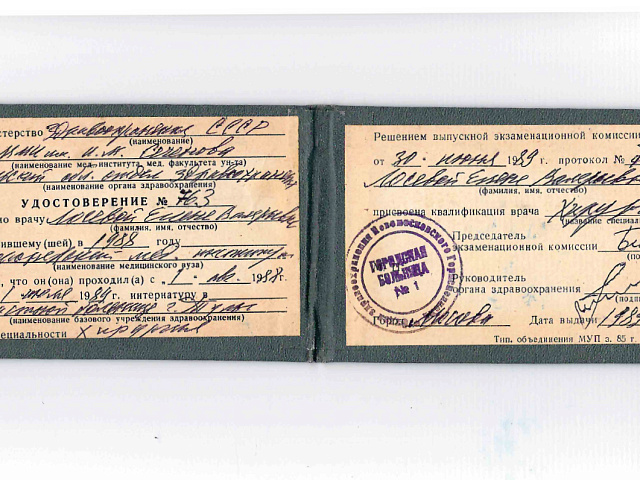 стерство Здравоохранения СССР
(наименование)
им. И.М. Сеченова
(наименование мед. института, мед. факультета ун-та)
обл. отдел здравоохранения
(наименование органа здравоохранения)
УДОСТОВЕРЕНИЕ № 763
но врачу Лосевой Елене Валерьевне
(фамилия, имя, отчество)
чившему(шей) в 1988 году
мед. институт
(наименование медицинского вуза)
что он(она) проходил(а) с 1. авг. 1988г.
1 июля 1989г. интернатуру в
больнице г. Тулы
(наименование базового учреждения здравоохранения)
специальности Хирургия
Решением выпускной экзаменационной комиссии
от 30. июня 1989г. протокол №
Лосевой Елене Валерьевне
(фамилия, имя, отчество)
присвоена квалификация врача Хирурга
(название специал
Председатель
экзаменационной комиссии
(по
Руководитель
органа здравоохранения
(подп
Город Москва Дата выдачи 1989
Тип. объединения МУП з. 85 г.
здравоохранения Новомосковского Городского
ГОРОДСКАЯ
БОЛЬНИЦА
№ 1